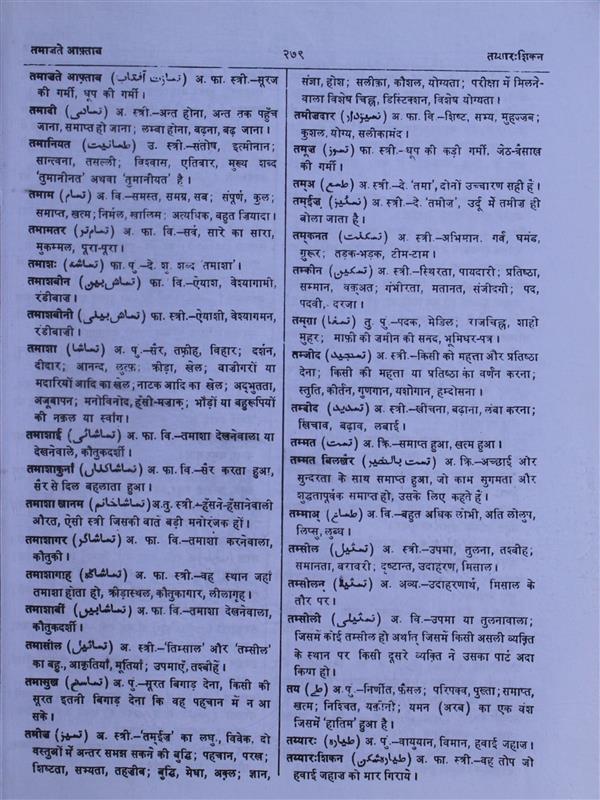 तमाजते आफ़्ताब
२७९
तय्यारःशिकन
तमाजते आफ़्ताब (تمازت آفتاب) अ. फा. स्त्री.–सूरज
की गर्मी, धूप की गर्मी।
तमादी (تمادی) अ. स्त्री.–अन्त होना, अन्त तक पहुँच
जाना, समाप्त हो जाना; लम्बा होना, बढ़ना, बढ़ जाना।
तमानियत (طمانیت) उ. स्त्री.–संतोष, इत्मीनान;
सान्त्वना, तसल्ली; विश्वास, एतिबार, मुख्य शब्द
'तुमानीनत' अथवा 'तुमानीयत' है।
तमाम (تمام) अ. वि.–समस्त, समग्र, सब; संपूर्ण, कुल;
समाप्त, खत्म; निर्मल, खालिस; अत्यधिक, बहुत ज़ियादा।
तमामतर (تمام تر) अ. फा. वि.–सर्व, सारे का सारा,
मुकम्मल, पूरा-पूरा।
तमाशः (تماشہ) फा. पुं.–दे. शु. शब्द 'तमाशा'।
तमाशबीन (تماش بین) फा. वि.–ऐयाश, वेश्यागामी,
रंडीबाज।
तमाशबीनी (تماش بینی) फा. स्त्री.–ऐयाशी, वेश्यागमन,
रंडीबाजी।
तमाशा (تماشا) अ. पुं.–सैर, तफ़्रीह, विहार; दर्शन,
दीदार; आनन्द, लुत्फ़; क्रीड़ा, खेल; बाजीगरों या
मदारियों आदि का खेल; नाटक आदि का खेल; अद्भुतता,
अजूबापन; मनोविनोद, हँसी-मजाक़; भाँड़ों या बहुरूपियों
की नक़ल या स्वाँग।
तमाशाई (تماشائی) अ. फा. वि.–तमाशा देखनेवाला या
देखनेवाले, कौतुकदर्शी।
तमाशाकुनाँ (تماشاکناں) अ. फा. वि.–सैर करता हुआ,
सैर से दिल बहलाता हुआ।
तमाशा खानम (تماشاخانم) अ.तु. स्त्री.–हँसने-हँसानेवाली
औरत, ऐसी स्त्री जिसकी बातें बड़ी मनोरंजक हों।
तमाशागर (تماشاگر) अ. फा. वि.–तमाशा करनेवाला,
कौतुकी।
तमाशागाह (تماشاگاہ) अ. फा. स्त्री.–वह स्थान जहाँ
तमाशा होता हो, क्रीड़ास्थल, कौतुकागार, लीलागृह।
तमाशाबीं (تماشابیں) अ. फा. वि.–तमाशा देखनेवाला,
कौतुकदर्शी।
तमासील (تماثیل) अ. स्त्री.–'तिम्साल' और 'तम्सील'
का बहु., आकृतियाँ, मूर्तियाँ; उपमाएँ, तश्बीहें।
तमासुख (تماسخ) अ. पुं.–सूरत बिगाड़ देना, किसी की
सूरत इतनी बिगाड़ देना कि वह पहचान में न आ
सके।
तमीज (تمیز) अ. स्त्री.–'तमईज' का लघु., विवेक, दो
वस्तुओं में अन्तर समझ सकने की बुद्धि; पहचान, परख;
शिष्टता, सभ्यता, तहज़ीब; बुद्धि, मेधा, अक़्ल; ज्ञान,
संज्ञा, होश; सलीक़ा, कौशल, योग्यता; परीक्षा में मिलने-
वाला विशेष चिह्न, डिस्टिंक्शन, विशेष योग्यता।
तमीजदार (تمیزدار) अ. फा. वि.–शिष्ट, सभ्य, मुहज़्ज़ब;
कुशल, योग्य, सलीकामंद।
तमूज (تموز) फा. स्त्री.–धूप की कड़ी गर्मी, जेठ-बैसाख
की गर्मी।
तम्अ (طمع) अ. स्त्री.–दे. 'तमा', दोनों उच्चारण सही हैं।
तम्ईज (تمئیز) अ. स्त्री.–दे. 'तमीज', उर्दू में तमीज ही
बोला जाता है।
तम्कनत (تمکنت) अ. स्त्री.–अभिमान, गर्व, घमंड,
ग़ुरूर; तड़क-भड़क, टीम-टाम।
तम्कीन (تمکین) अ. स्त्री.–स्थिरता, पायदारी; प्रतिष्ठा,
सम्मान, वक़्अत; गंभीरता, मतानत, संजीदगी; पद,
पदवी, दरजा।
तम्ग़ा (تمغا) तु. पुं.–पदक, मेडिल; राजचिह्न, शाही
मुहर; माफ़ी की जमीन की सनद, भूमिधर-पत्र।
तम्जीद (تمجید) अ. स्त्री.–किसी को महत्ता और प्रतिष्ठा
देना; किसी की महत्ता या प्रतिष्ठा का वर्णन करना;
स्तुति, कीर्तन, गुणगान, यशोगान, हम्दोसना।
तम्दीद (تمدید) अ. स्त्री.–खींचना, बढ़ाना, लंबा करना;
खिंचाव, बढ़ाव, लंबाई।
तम्मत (تمت) अ. क्रि.–समाप्त हुआ, खत्म हुआ।
तम्मत बिलखैर (تمت بالخیر) अ. क्रि.–अच्छाई और
सुन्दरता के साथ समाप्त हुआ, जो काम सुगमता और
शुद्धतापूर्वक समाप्त हो, उसके लिए कहते हैं।
तम्माअ् (طماع) अ. वि.–बहुत अधिक लोभी, अति लोलुप,
लिप्सु, लुब्ध।
तम्सील (تمثیل) अ. स्त्री.–उपमा, तुलना, तश्बीह;
समानता, बराबरी; दृष्टान्त, उदाहरण, मिसाल।
तम्सीलन् अ. अव्य.–उदाहरणार्थ, मिसाल के
तौर पर।
तम्सीली (تمثیلی) अ. वि.–उपमा या तुलनावाला;
जिसमें कोई तम्सील हो अर्थात् जिसमें किसी असली व्यक्ति
के स्थान पर किसी दूसरे व्यक्ति ने उसका पार्ट अदा
किया हो।
तय (طے) अ. पुं.–निर्णीत, फ़ैसल; परिपक्व, पुख्ता; समाप्त,
खत्म; निश्चित, यक़ीनी; यमन (अरब) का एक वंश
जिसमें 'हातिम' हुआ है।
तय्यारः (طیارہ) अ. पुं.–वायुयान, विमान, हवाई जहाज।
तय्यारःशिकन (طیارہ شکن) अ. फा. स्त्री.–वह तोप जो
हवाई जहाज को मार गिराये।